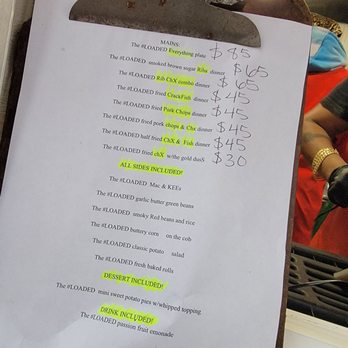 MAINS
The #LOADED Everything plate $85
The #LOADED smoked brown sugar Ribs dinner $65
The #LOADED Rib ChX combo dinner $65
The #LOADED fried CrackFish dinner $45
The #LOADED fried Pork Chops dinner $45
The #LOADED fried pork chops & Chx dinner $45
The #LOADED half fried ChX & Fish dinner $45
The #LOADED fried chX w/the gold dusS $30
ALL SIDES INCLUDED!
The #LOADED Mac & KEEs
The #LOADED garlic butter green beans
The #LOADED smoky Red beans and rice
The #LOADED buttery corn on the cob
The #LOADED classic potato salad
The #LOADED fresh baked rolls
DESSERT INCLUDED!
The #LOADED mini sweet potato pies w/whipped topping
DRINK INCLUDED!
The #LOADED passion fruit emonade